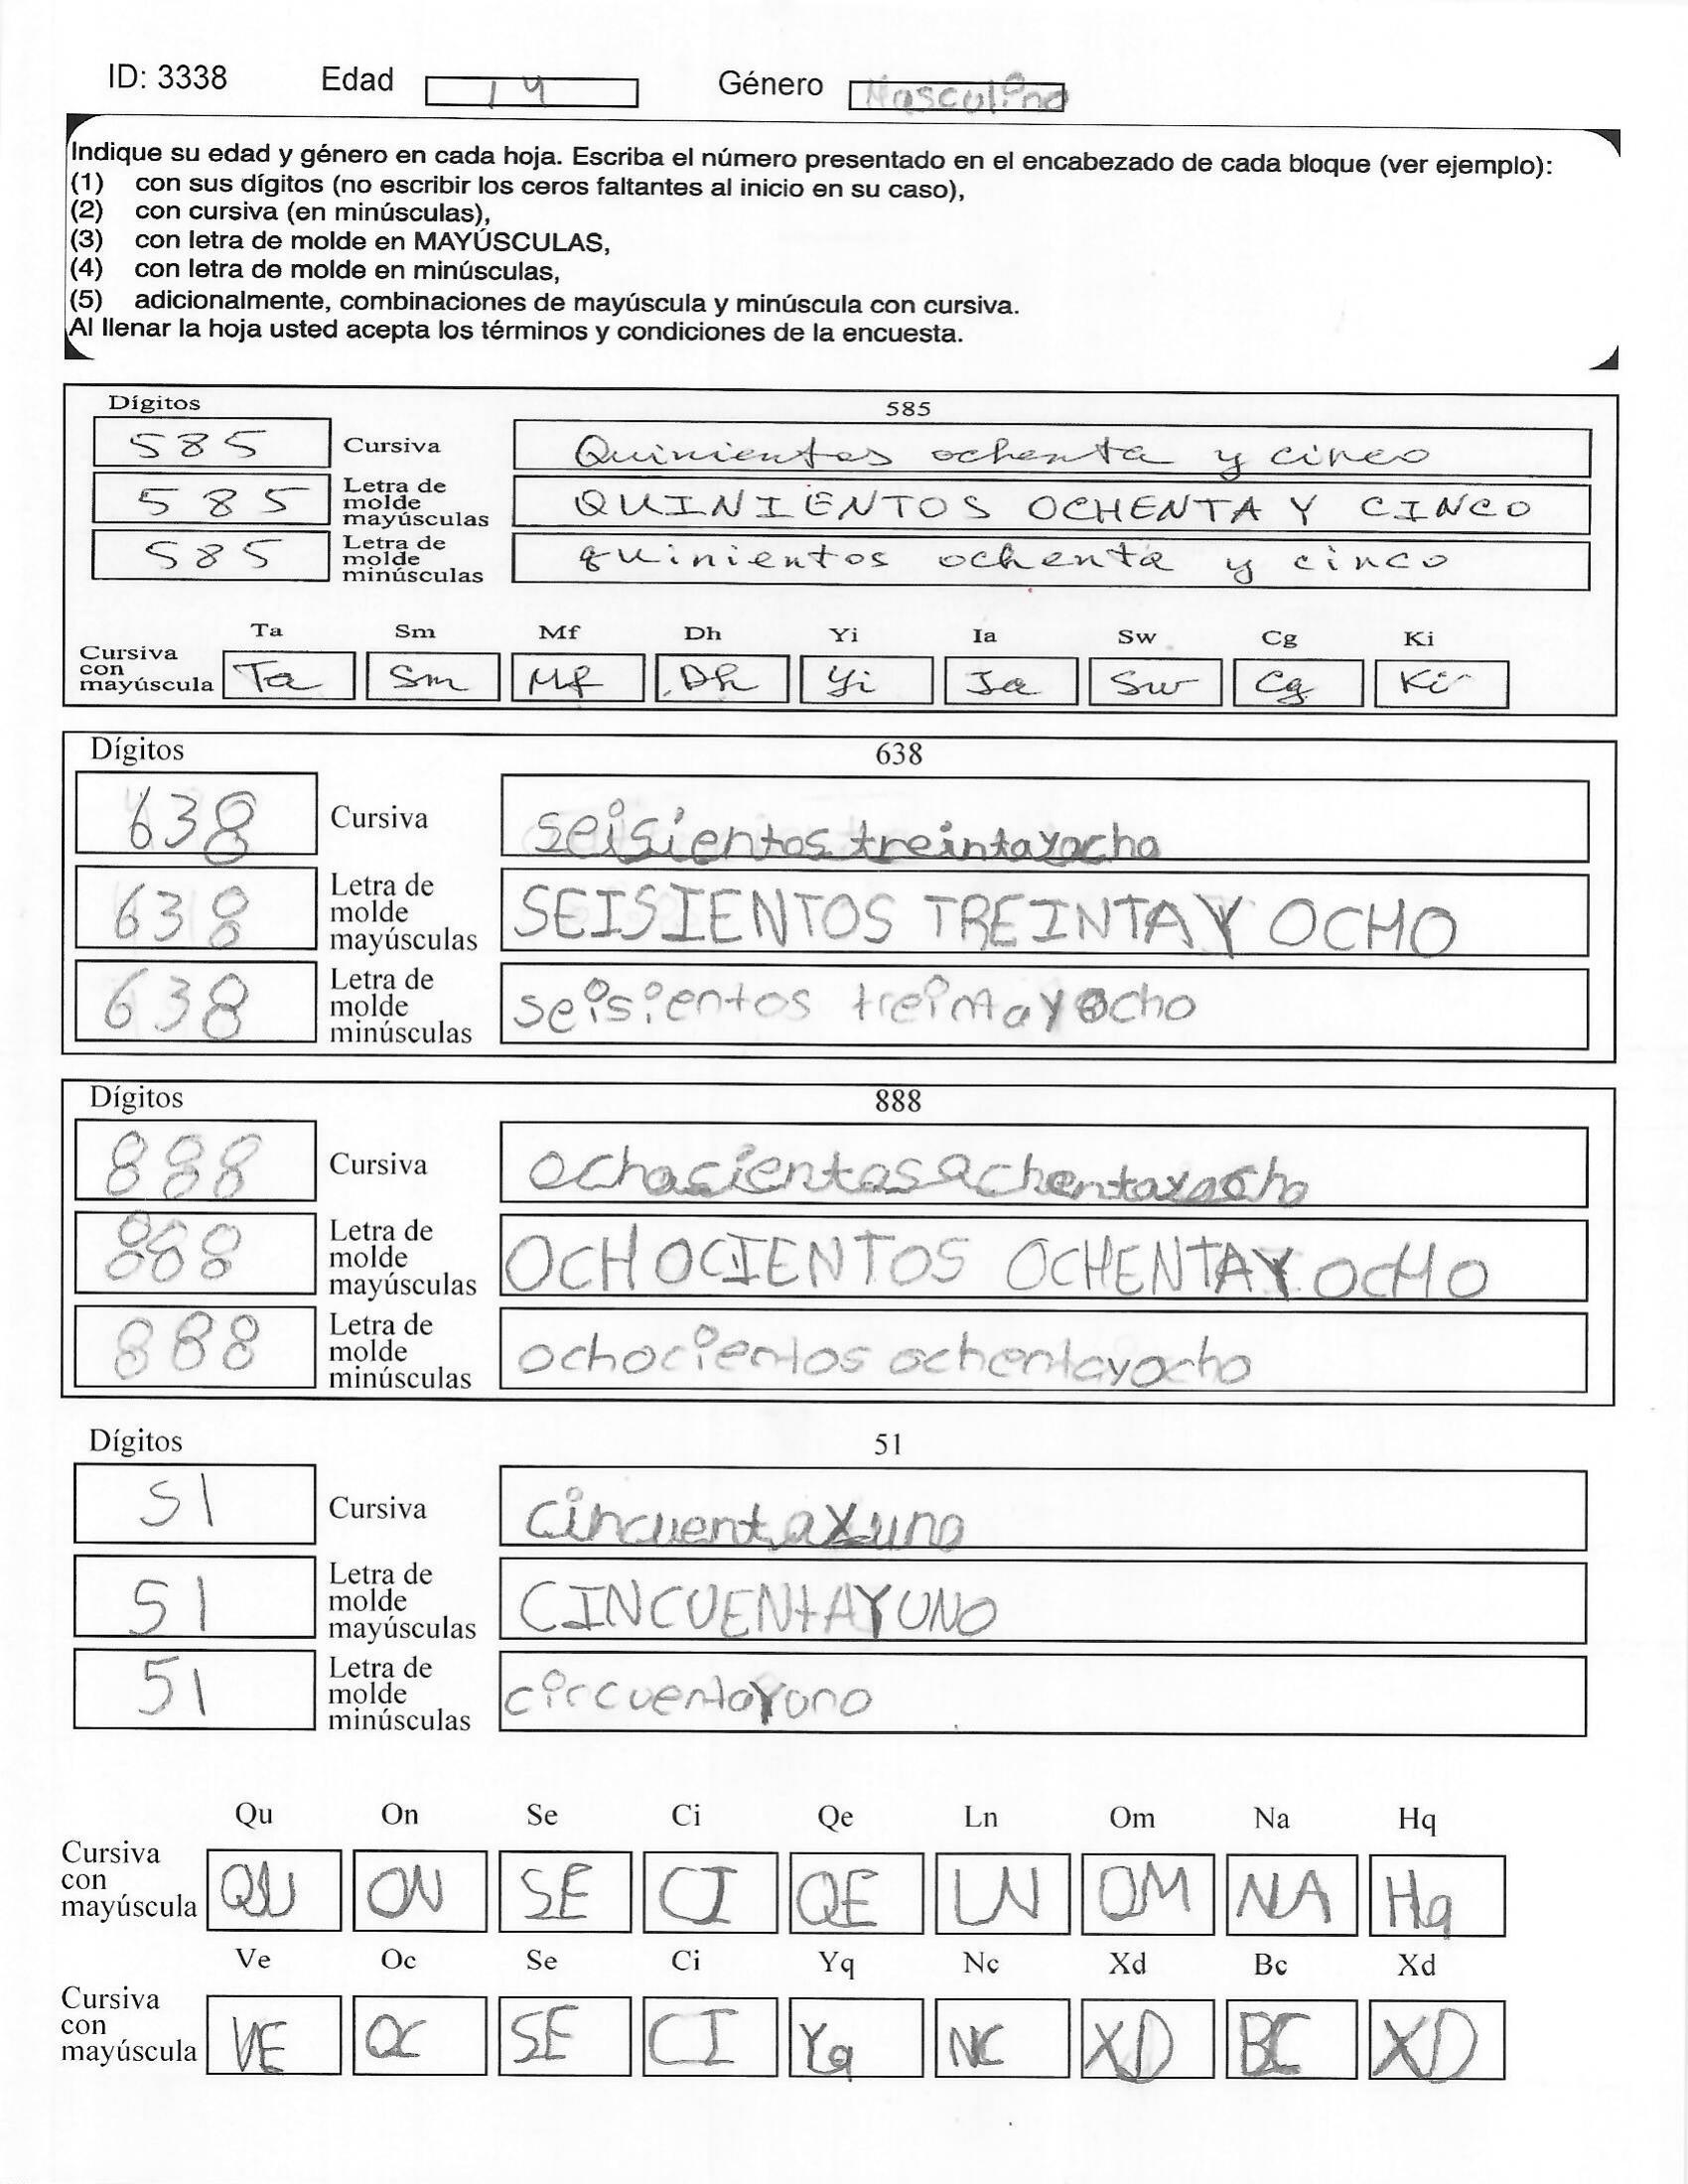 ID: 3338 Edad 14 Género Masculino
Indique su edad y género en cada hoja. Escriba el número presentado en el encabezado de cada bloque (ver ejemplo):
(1) con sus dígitos (no escribir los ceros faltantes al inicio en su caso),
(2) con cursiva (en minúsculas),
(3) con letra de molde en MAYÚSCULAS,
(4) con letra de molde en minúsculas,
(5) adicionalmente, combinaciones de mayúscula y minúscula con cursiva.
Al llenar la hoja usted acepta los términos y condiciones de la encuesta.
Dígitos 585
585 Cursiva Quinientos ochenta y cinco
585 Letra de molde mayúsculas QUINIENTOS OCHENTA Y CINCO
585 Letra de molde minúsculas quinientos ochenta y cinco
Ta Sm Mf Dh Yi Ia Sw Cg Ki
Cursiva con mayúscula Ta Sm Mf Dh Yi Ia Sw Cg Ki
Dígitos 638
638 Cursiva seisientos treintayocho
638 Letra de molde mayúsculas SEISIENTOS TREINTA Y OCHO
638 Letra de molde minúsculas seisientos treintayocho
Dígitos 888
888 Cursiva ochocientosochentayocho
888 Letra de molde mayúsculas OCHOCIENTOS OCHENTAY OCHO
888 Letra de molde minúsculas ochocientos ochentayocho
Dígitos 51
51 Cursiva cincuentayuno
51 Letra de molde mayúsculas CINCUENtAYUNO
51 Letra de molde minúsculas circuentayuno
Qu On Se Ci Qe Ln Om Na Hq
Cursiva con mayúscula QU ON SE CI QE LN OM NA Hq
Ve Oc Se Ci Yq Nc Xd Bc Xd
Cursiva con mayúscula VE OC SE CI Yq NC XD BC XD